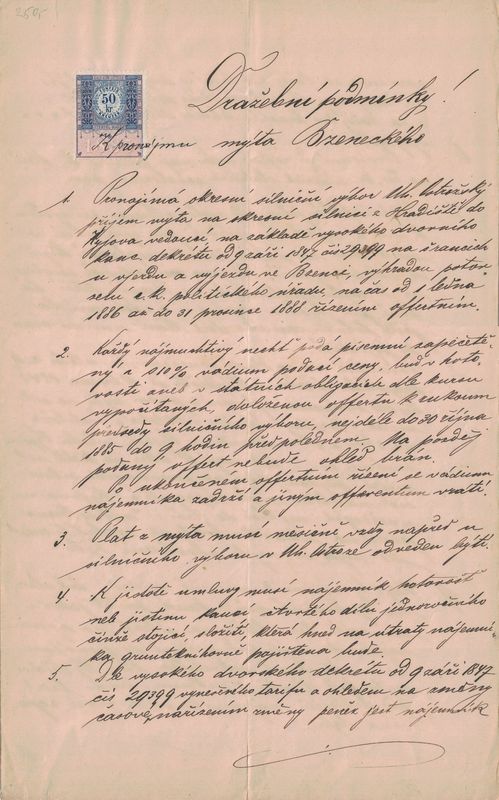 250,-
50 kr
Dražební podmínky!
K pronájmu mýta Bzeneckého
1. Pronajímá okresní silniční výbor Uh. Ostrožský
příjem mýta na okresní silnici z Hradiště do
Kyjova vedoucí, na základě vysokého dvorního
kanc. dekretu od 9 září 1847 čís 29399 na šrancích
u vjezdu a vyjezdu ve Bzenci, výhradou potvr-
zení c. k. politického úřadu, na čas od 1 ledna
1886 až do 31 prosince 1888 řízením offertním.
2. Každý nájmuchtivý nechť podá písemní zapečetě-
ný z 10% vadium podací ceny, buď v hoto-
vosti aneb v státních obligacích dle kursu
vypočítaných, doloženou offertu k rukoum
předsedy silničního výboru, nejdéle do 30 října
1885 do 9 hodin předpolednem. Na později
podaný offert nebude ohled brán.
Po ukončeném offertním řízení se vadium
nájemníka zadrží a jiným offerentum vrátí.
3. Plat z mýta musí měsíčně vždy napřed u
silničního výboru v Uh. Ostroze odveden býti.
4. K jistotě umluvy musí nájemník hotovost
neb jistinu kaucí čtvrtého dílu jednoročního
činže stojící, složiti, která hned na útraty nájemní-
ka gruntoknihovně pojištěna bude.
5. Dle vysokého dvorského dekrétu od 9 září 1847
čís 29399 vyneseného tarifu a ohledem na změny
časové, nařízením změny peněz jest nájemník